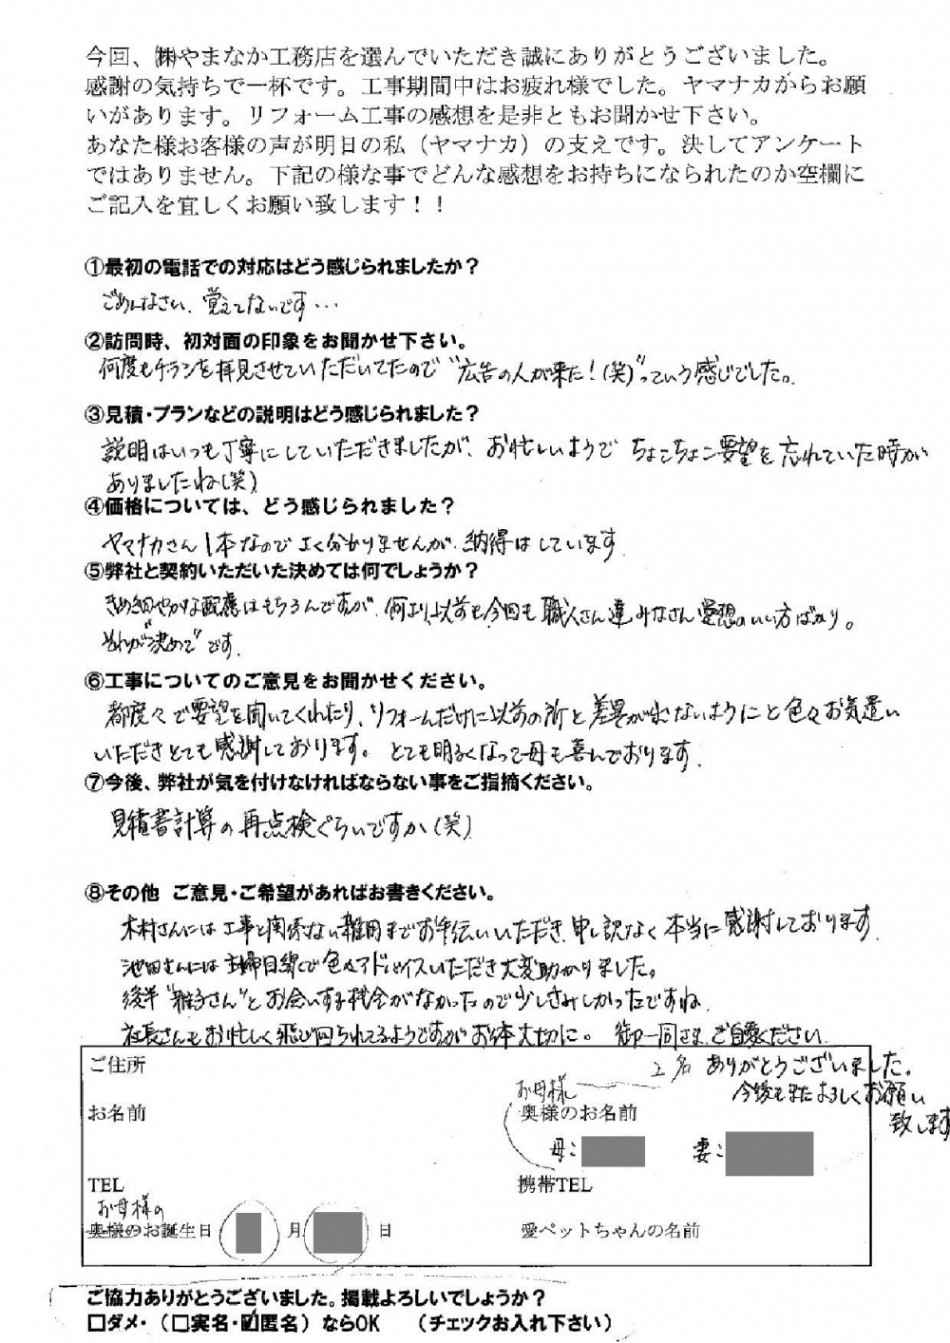 今回、㈱やまなか工務店を選んでいただき誠にありがとうございました。
感謝の気持ちで一杯です。工事期間中はお疲れ様でした。ヤマナカからお願
いがあります。リフォーム工事の感想を是非ともお聞かせ下さい。
あなた様お客様の声が明日の私（ヤマナカ）の支えです。決してアンケート
ではありません。下記の様な事でどんな感想をお持ちになられたのか空欄に
ご記入を宜しくお願い致します！！
①最初の電話での対応はどう感じられましたか？
ごめんなさい、覚えてないです…
②訪問時、初対面の印象をお聞かせ下さい。
何度もチラシを拝見させていただいてたので"広告の人が来た！(笑)"っていう感じでした。
③見積・プランなどの説明はどう感じられました？
説明はいつも丁寧にしていただきましたが、お忙しいようで ちょこちょこ要望を忘れていた時が
ありましたね(笑)
④価格については、どう感じられました？
ヤマナカさん1本なのでよく分かりませんが、納得はしています。
⑤弊社と契約いただいた決めては何でしょうか？
きめ細やかな配慮はもちろんですが、何より、以前も今回も職人さん達みなさん愛想のいい方ばかり。
それが"決めて"です。
⑥工事についてのご意見をお聞かせください。
都度々で要望を聞いてくれたり、リフォームだけに以前の所と差異が出ないようにと色々お気遣い
いただきとても感謝しております。とても明るくなって母も喜んでおります。
⑦今後、弊社が気を付けなければならない事をご指摘ください。
見積書計算の再点検ぐらいですか(笑)
⑧その他 ご意見・ご希望があればお書きください。
木村さんには工事と関係ない雑用までお手伝いいただき、申し訳なく本当に感謝しております。
池田さんには主婦目線で色々アドバイスいただき大変助かりました。
後半"雅子さん"とお会いする機会がなかったので少しさみしかったですね。
社長さんもお忙しく飛び回られてるようですがお体大切に。 御一同さま、ご自愛ください
ありがとうございました。
今後もまたよろしくお願い
致します
ご住所
2名
お母様
お名前
奥様のお名前
母：
妻：
TEL
携帯TEL
お母様の
奥様のお誕生日 月 日
愛ペットちゃんの名前
ご協力ありがとうございました。掲載よろしいでしょうか？
□ダメ・（□実名・☑匿名）ならOK （チェックお入れ下さい）